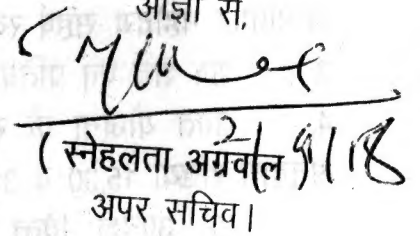 आज्ञा से,
( स्नेहलता अग्रवाल )
अपर सचिव।